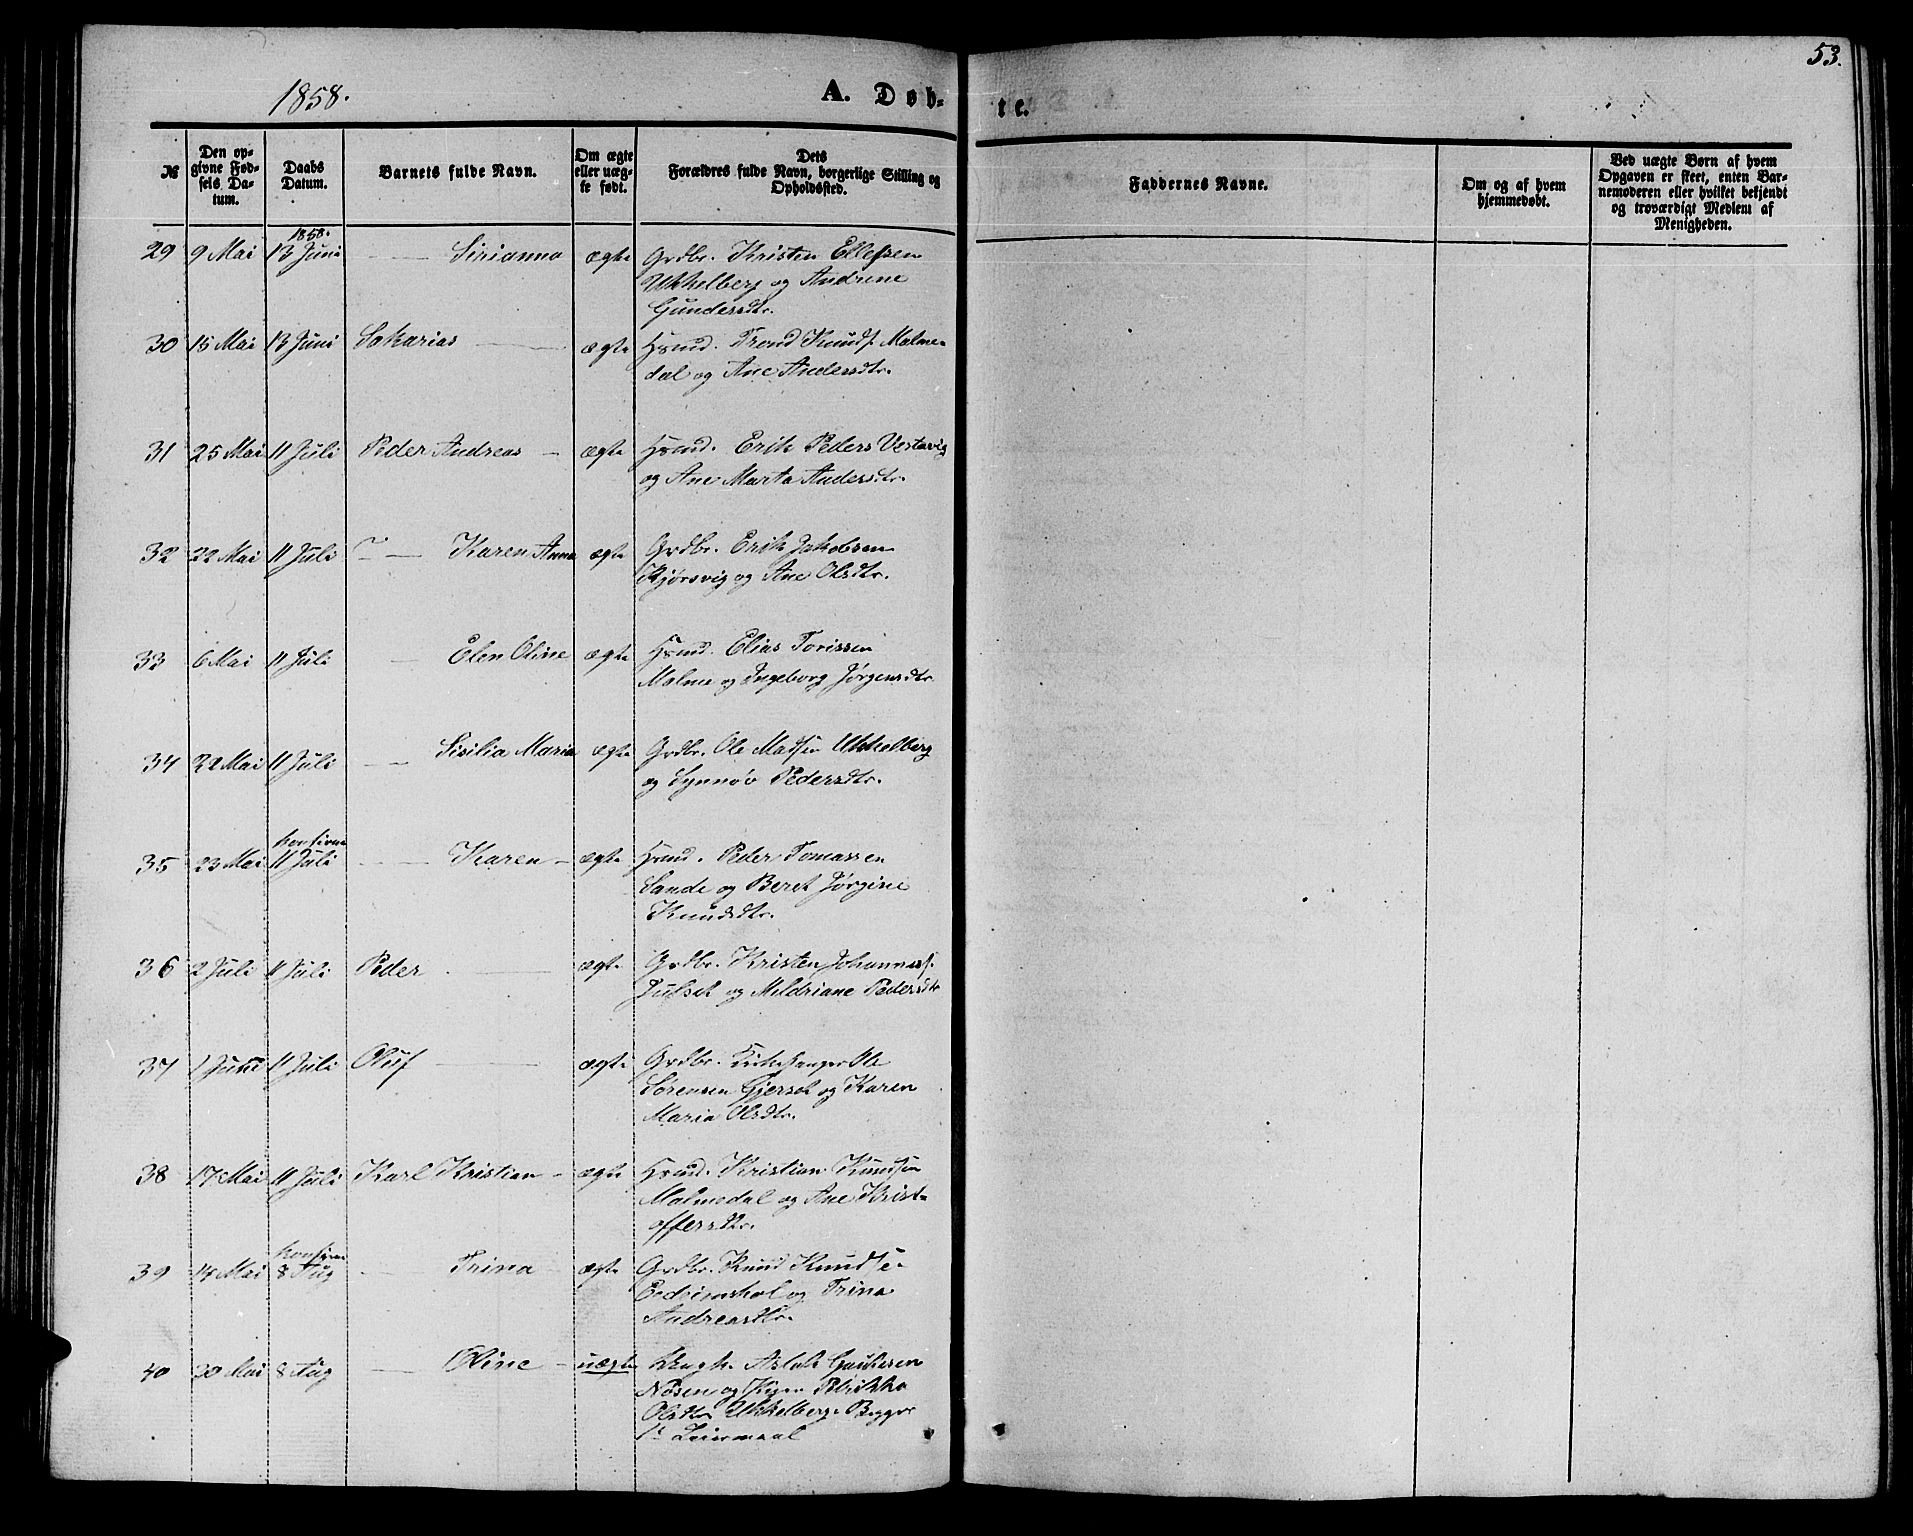 53.
1858.
A. Døb-
te.
№
Den op-
givne Fød-
sels Da-
tum.
Daabs
Datum.
Barnets fulde Navn.
Om ægte
eller uæg-
te født.
Dets
Forældres fulde Navn, borgerlige Stilling og
Opholdssted.
Faddernes Navne.
Om og af hvem
hjemmedøbt.
Ved uægte Børn af hvem
Opgaven er skeet, enten Bar-
nemoderen eller hvilket bekjendt
og troværdigt Medlem af
Menigheden.
1858.
29 9 Mai 13 Juni — Sirianna ægte Grdbr. Kristen Ellefsen
Ukkelberg og Andrine
Gundersdtr.
30 15 Mai 13 Juni Sakarias — ægte Hsmd. Trond Knuds. Malme-
dal og Ane Andersdtr.
31 25 Mai 11 Juli Peder Andreas — ægte Hsmd. Erik Peders Vestavig
og Ane Marta Andersdtr.
32 22 Mai 11 Juli — Karen Anna ægte Grdbr. Erik Jakobsen
Kjørsvig og Ane Olsdtr.
33 6 Mai 11 Juli — Elen Oline ægte Hsmd. Elias Torissen
Malme og Ingeborg Jørgensdtr.
34 22 Mai 11 Juli — Sisilia Maria ægte Grdbr. Ole Madsen Ukkelberg
og Synnøv Pedersdtr.
35 23 Mai 11 Juli — Karen — ægte Hsmd. Peder Tomassen
Sande og Beret Jørgine
Knudsdtr.
36 2 Juli 11 Juli Peder — ægte Grdbr. Kristen Johanness.
Julset og Mildriane Pedersdtr
37 1 Juni 11 Juli Oluf — ægte Grdbr. Kirkesanger Ole
Sørensen Gjerset og Karen
Maria Olsdtr.
38 17 Mai 11 Juli Karl Kristian — ægte Hsmd. Kristian Knudsen
Malmedal og Ane Krist-
offersdtr.
39 14 Mai 8 Aug — Trina — ægte Grdbr. Knud Knudse-
og Trina
Andreasdtr.
40 30 Mai 8 Aug — Oline — uægte Ungk. Aslak
Nøsen og Pige Petrikka
Olsdtr Ukkelberg. Begges
1ste Leiermaal